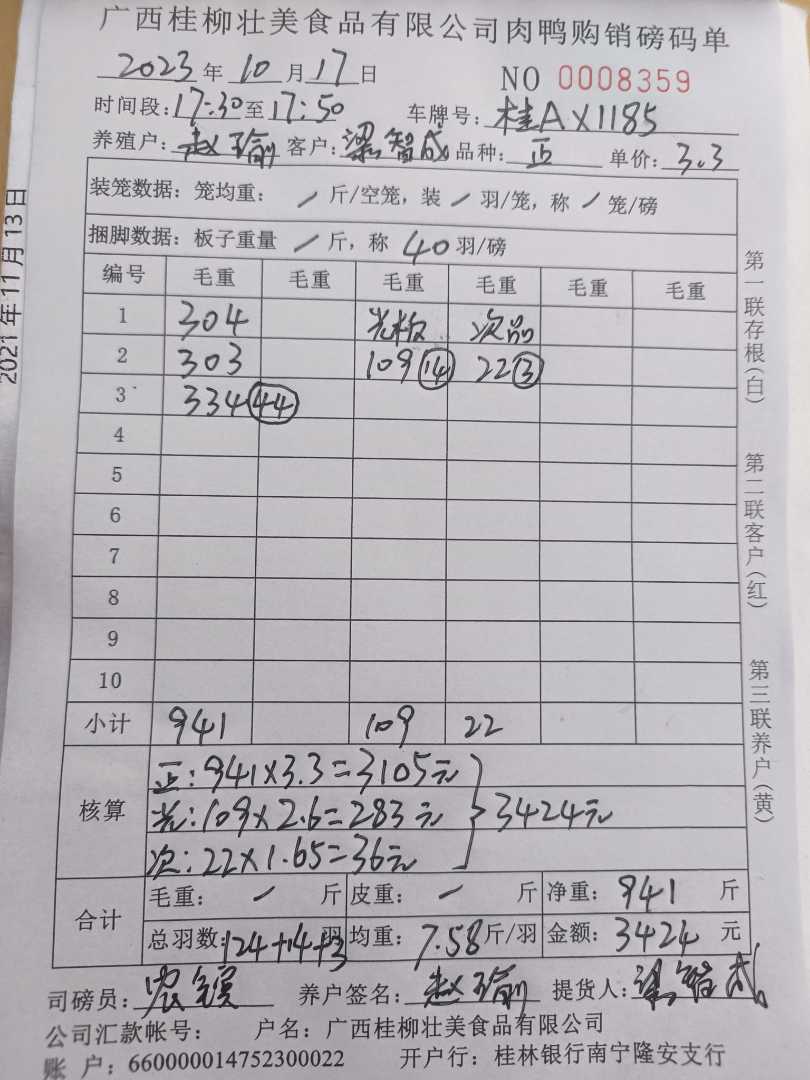 广西桂柳壮美食品有限公司肉鸭购销磅码单
2023年10月17日 NO 0008359
时间段:17:30至17:50 车牌号:桂AX1185
养殖户:赵瑜 客户:梁智成 品种:正 单价:3.3
装笼数据:笼均重: / 斤/空笼,装 / 羽/笼,称 / 笼/磅
捆脚数据:板子重量 / 斤,称 40 羽/磅
编号 毛重 毛重 毛重 毛重 毛重 毛重
1 304 光板 次品
2 303 109 14 22 3
3 334 44
4
5
6
7
8
9
10
小计 941 109 22
核算
正:941×3.3=3105元
光:109×2.6=283元 3424元
次:22×1.65=36元
合计
毛重: / 斤 皮重: / 斤 净重:941 斤
总羽数:124+14+3羽 均重:7.58斤/羽 金额:3424元
司磅员: 养户签名:赵瑜 提货人:梁智成
公司汇款帐号: 户名:广西桂柳壮美食品有限公司
账户:660000014752300022 开户行:桂林银行南宁隆安支行
第一联存根(白) 第二联客户(红) 第三联养户(黄)
2021年11月13日